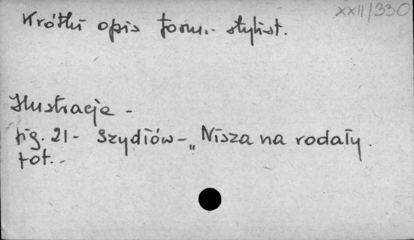 XXII/330
Krótki opis form.- stylist.
Ilustracje -
fig. 21 - Szydłów - „Nisza na rodały.
fot. -